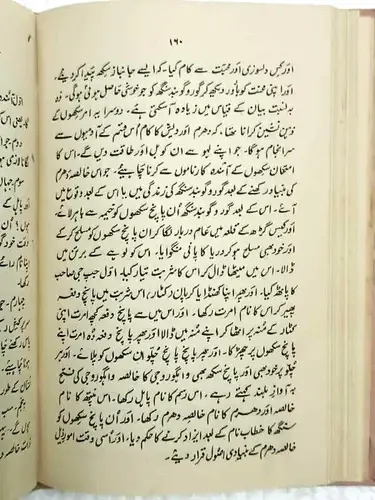 ۱۶۰
اور جس دلسوزی اور محبت سے کام کیا۔ کہ ایسے جانباز سکھ پیدا کر دیئے۔
اور اتنی محنت کو بارور دیکھ کر گورو گوبند سنگھ کو جو خوشی حاصل ہوئی ہوگی۔ وہ
بہ نسبت بیان کے قیاس میں زیادہ آسکتی ہے۔ دوسرا یہ امر سکھوں کے
ذہن نشین کرانا تھا۔ کہ دھرم اور دیش کا کام اس قسم کے آدمیوں سے
سرانجام ہوگا۔ جو اپنے لہو سے ان کو بل اور طاقت دیں گے۔ اس کا
امتحان سکھوں کے آئندہ کارناموں سے کرنا چاہیئے۔ جو اس خالصہ دھرم
کی بنیاد رکھنے کے بعد گورو گوبند سنگھ کی زندگی میں یا اس کے بعد وقوع میں
آئے۔ اس کے بعد گورو گوبند سنگھ ان پانچ سکھوں کو خیمہ سے باہر لائے۔
اور کیس گڑھ کے قلعہ میں عام دربار لگا کر ان پانچ سکھوں کو مسلح کر کے
اور خود بھی مسلح ہو کر دریا کا پانی منگوایا۔ اس کو لوہے کے برتن میں
ڈالا۔ اس میں میٹھا ڈال کر اس کا شربت تیار کیا۔ اول جپ جی صاحب
کا پاٹھ کیا۔ اور پھر اپنا کھنڈا یا کرپان (کٹار) اس شربت میں پانچ دفعہ پھیر کر
اس کا نام امرت رکھا۔ اور اس میں سے پانچ دفعہ کچھ امرت اپنی
کٹار کے منہ پر اٹھا کر اپنے منہ میں ڈالا اور پھر پانچ دفعہ وہ امرت اپنے
پانچ سکھوں پر چھڑکا۔ اور پھر پانچ پانچ چلو ان سکھوں کو پلائے۔ اور ہر
چلو پر خود بھی اور پانچ سکھ بھی واہگورو جی کا خالصہ واہگورو جی کی فتح
بہ آواز بلند کہتے رہے۔ اس رسم کا نام پاہل رکھا۔ اس پنتھ کا نام
خالصہ اور دھرم کا نام خالصہ دھرم رکھا۔ اور ان پانچ سکھوں کو
سنگھ کا خطاب نام کے بعد ایزاد کرنے کا حکم دیا۔ اور اسی وقت امور ذیل
خالصہ دھرم کے بنیادی اصول قرار دیئے۔